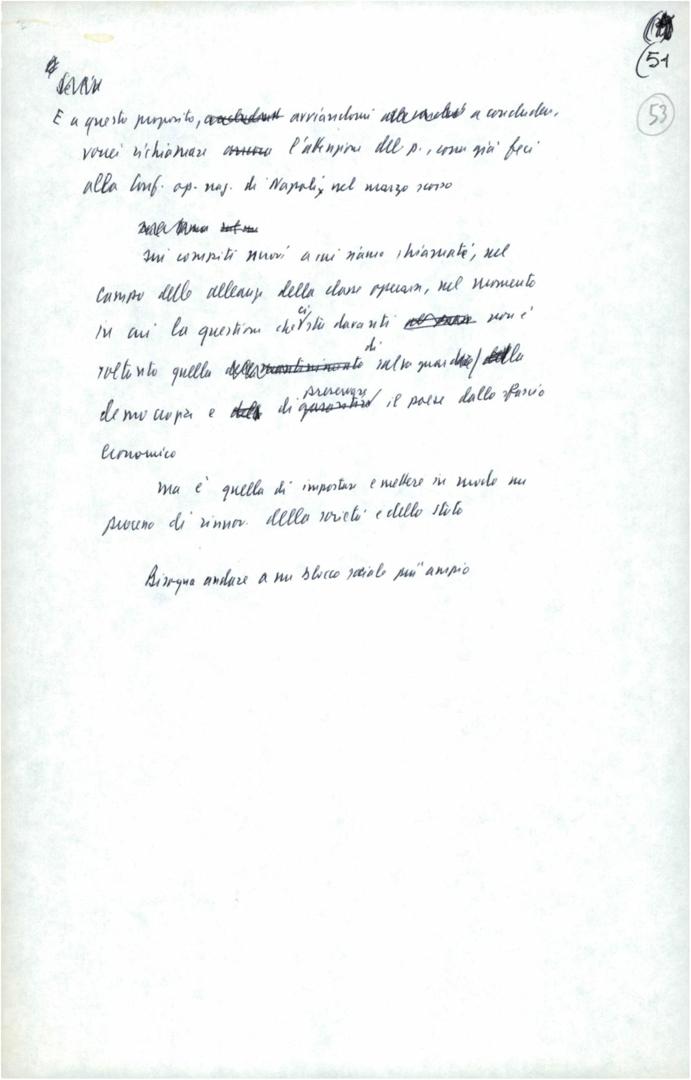 51
53
E a questo proposito, avviandomi a concludere,
vorrei richiamare l'attenzione del p., come già feci
alla Conf. op. naz. di Napoli, nel marzo scorso
sui compiti nuovi a cui siamo chiamati, nel
campo delle alleanze della classe operaia, nel momento
in cui la questione che ci sta davanti non è
soltanto quella di salvaguardia della
democrazia e di preservare il paese dallo sfascio
economico
ma è quella di impostare e mettere in moto un
processo di rinnov. della società e dello stato
Bisogna andare a un blocco sociale più ampio